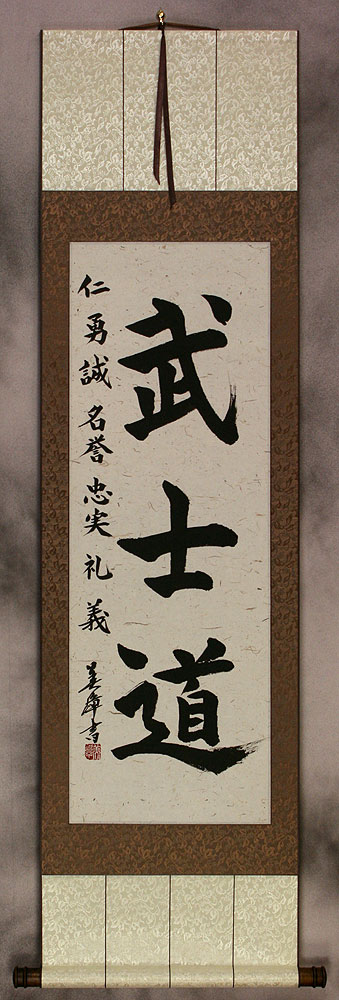 武士道
仁 勇 誠 名誉 忠実 礼 義